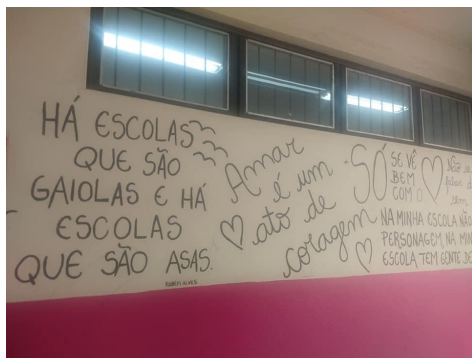 HÁ ESCOLAS
QUE SÃO
GAIOLAS E HÁ
ESCOLAS
QUE SÃO ASAS.
RUBEM ALVES
Amar
é um
ato de
coragem
SÓ SE VÊ
BEM
COM O
NA MINHA ESCOLA NÃO
PERSONAGEM, NA MIN
ESCOLA TEM GENTE DE